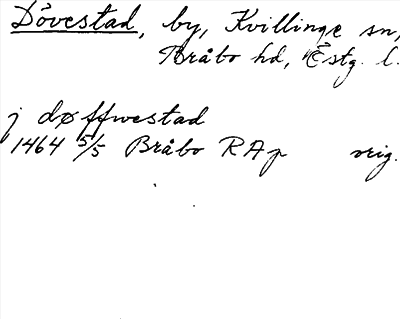 Dövestad, by, Kvillinge sn,
Bråbo hd, Östg. l.
j døffwestad
1464 5/5 Bråbo RAp orig.